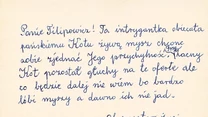 Panie Filipowicz! Ta intrygantka obiecała
pańskiemu Kotu żywą mysz chcąc
sobie zjednać Jego przychylność. Zacny
Kot pozostał głuchy na te oferte ale
co będzie dalej nie wiem bo bardzo
lubi myszy a dawno ich nie jadł.